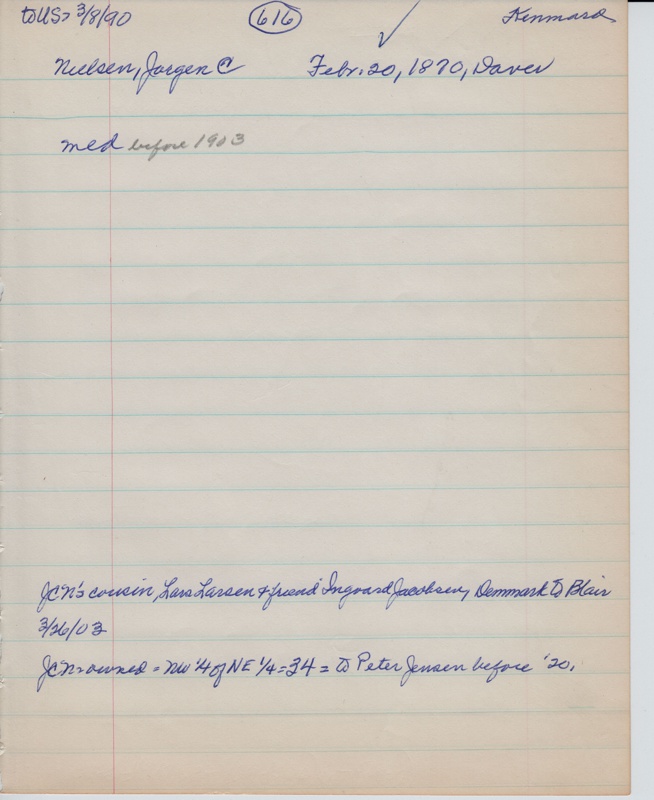 to US> 3/8/90 616 Kennard
Nielsen, Jorgen C Febr. 20, 1870, Daver
med before 1903
JCN's cousin, Lars Larsen & friend Ingvard Jacobsen, Denmark to Blair
3/26/03
JCN> owned = NW 1/4 of NE 1/4 = 34 = to Peter Jensen before '20.